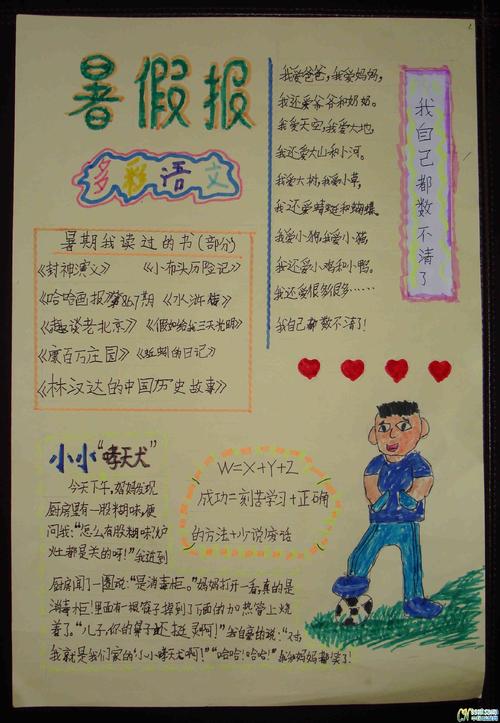 暑假报
多彩语文
暑期我读过的书(部分)
《封神演义》 《小布头历险记》
《哈哈画报第867期》《水浒传》
《趣谈老北京》《假如给我三天光明》
《康百万庄园》《蚯蚓的日记》
《林汉达的中国历史故事》
我爱爸爸,我爱妈妈,
我还爱爷爷和奶奶。
我爱天空,我爱大地,
我还爱大山和小河。
我爱大树,我爱小草,
我还爱蜻蜓和蝴蝶。
我爱小狗,我爱小猫
我还爱小鸡和小鸭。
我还爱很多很多……
我自己都数不清了!
我自己都数不清了
小小“哮天犬”
今天下午,妈妈发现
厨房里有一股糊味,便
问我:“怎么有股糊味?炉
灶都是关的呀!”我跑到
厨房闻了一圈说:“是消毒柜。”妈妈打开一看,真的是
消毒柜!里面有根筷子掉到了下面的加热管上烧
着了。“儿子,你的鼻子还挺灵啊!”我自豪的说:“对
我就是我们家的‘小小哮天犬’啊!”“哈哈!哈哈!”我和妈妈都笑了!
W=X+Y+Z
成功=刻苦学习+正确
的方法+少说废话